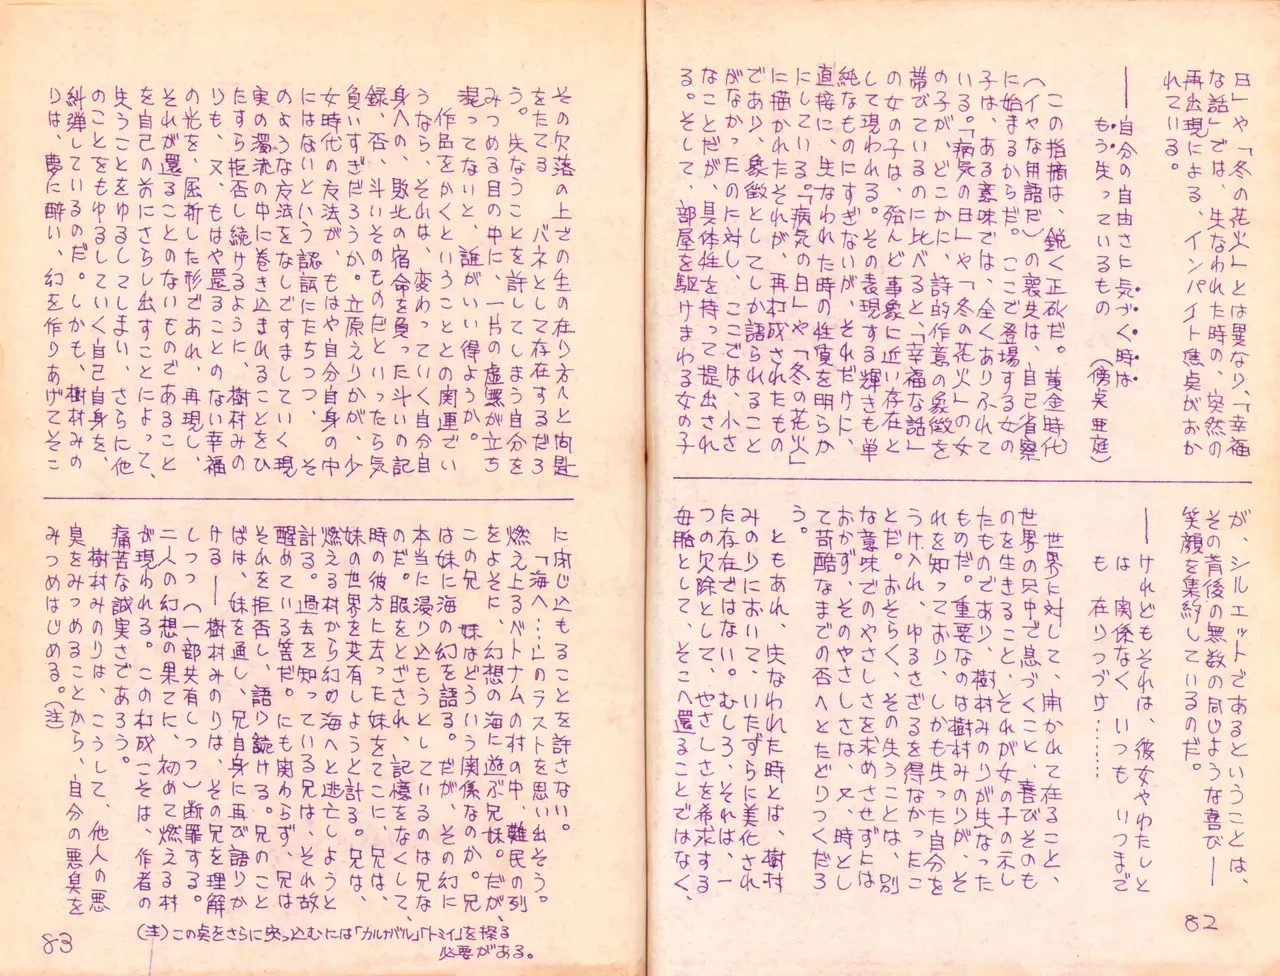 日」や「冬の花火」とは異なり、「幸福
な話」では、失なわれた時の、突然の
再出現による、インパイト焦点がおか
れている。
――自分の自由さに気づく時は
もう失っているもの
(傍点 亜庭)
この指摘は、鋭く正確だ。黄金時代
(イヤな用語だ)の喪失は、自己省察
に始まるからだ。ここで登場する女の
子は、ある意味では、全くありふれて
いる。「病気の日」や「冬の花火」の女
の子が、どこかに、詩的作意の象徴を
帯びているのに比べると、「幸福な話」
の女の子は、殆んど事象に近い存在と
して現われる。その表現する輝きも単
純なものにすぎないが、それだけに、
直接に、失なわれた時の性質を明らか
にしている。「病気の日」や「冬の花火」
に描かれたそれが、再構成されたもの
であり、象徴としてしか語られること
がなかったのに対し、ここでは、小さ
なことだが、具体性を持って提出され
る。そして、部屋を駆けまわる女の子
が、シルエットであるということは、
その背後の無数の同じような喜び――
笑顔を集約しているのだ。
――けれどもそれは、彼女やわたしと
は 関係なく いつも いつまで
も 在りつづけ………
世界に対して、開かれて在ること、
世界の只中で息づくこと、喜びそのも
のを生きること、それが女の子の示し
たものであり、樹村みのりが失なった
ものだ。重要なのは樹村みのりが、そ
れを知っており、しかも失った自分を
うけ入れ、ゆるさざるを得なかったこ
とだ。おそらく、その失うことは、別
な意味でのやさしさを求めさせずには
おかず、そのやさしさは、又、時とし
て苛酷なまでの否へとたどりつくだろ
う。
ともあれ、失なわれた時とは、樹村
みのりにおいて、いたずらに美化され
た存在ではない。むしろ、それは、一
つの欠除として、やさしさを希求する
母胎として、そこへ還ることではなく、
82
その欠落の上での生の在り方へと向是
をたてる バネとして存在するだろ
う。失なうことを許してしまう自分を
みつめる目の中に、一片の虚無が立ち
混ってないと、誰がいい得ようか。
作品をかくということとの関連でい
うなら、それは、変わっていく自分自
身への、敗北の宿命を負った斗いの記
録、否、斗いそのものだといったら気
負いすぎだろうか。立原えりかが、少
女時代の友法が、もはや自分自身の中
にはないという認識にたちつつ、そ
のような友法をなしですましていく現
実の濁流の中に巻き込まれることをひ
たすら拒否し続けるように、樹村みの
りも、又、もはや還ることのない幸福
の光を、屈折した形であれ、再現し、
それが還ることのないものであること
を自己の前にさらし出すことによって、
失うことをゆるしてしまい、さらに他
のことをもゆるしていく自己自身を、
糾弾しているのだ。しかも、樹村みの
りは、夢に酔い、幻を作りあげてそこ
に閉じ込もることを許さない。
「海へ……」のラストを思い出そう。
燃え上るベトナムの村の中、難民の列
をよそに、幻想の海に遊ぶ兄妹。だが、
この兄 妹はどういう関係なのか。兄
は妹に海の幻を語る。だが、その幻に
本当に浸り込もうとしているのは兄な
のだ。眼をとざされ、記憶をなくして、
時の彼方に去った妹をてこに、兄は、
妹の世界を共有しようと計る。兄は、
燃える村から幻の海へと逃亡しようと
計る。過去を知っている兄は、それ故
醒めている筈だ。にも関わらず、兄は
それを拒否し、語り続ける。兄のこと
ばは、妹を通し、兄自身に再び語りか
ける――樹村みのりは、その兄を理解
しつつ(一部共有しつつ)断罪する。
二人の幻想の果てに、初めて燃える村
が現われる。この構成こそは、作者の
痛苦な誠実さであろう。
樹村みのりは、こうして、他人の悪
臭をみつめることから、自分の悪臭を
みつめはじめる。(注)
(注)この点をさらに突っ込むには「カルナバル」「トミイ」を探る
必要がある。
83